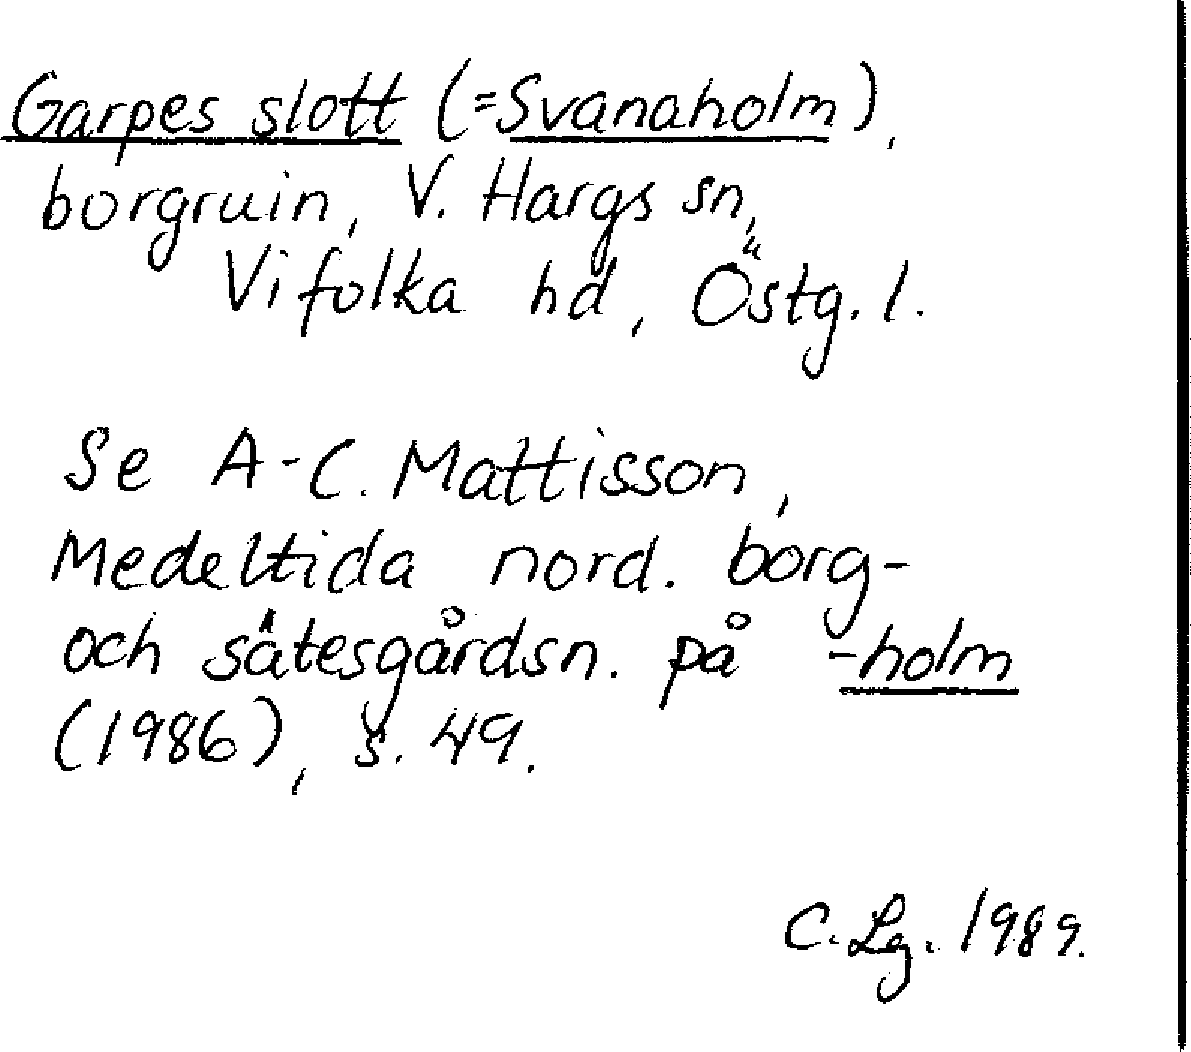 Garpes slott (=Svanaholm),
borgruin, V. Hargs sn,
Vifolka hd, Östg. l.
Se A-C. Mattisson,
Medeltida nord. borg-
och sätesgårdsn. på -holm
(1986), s. 49.
C. Lg. 1989.